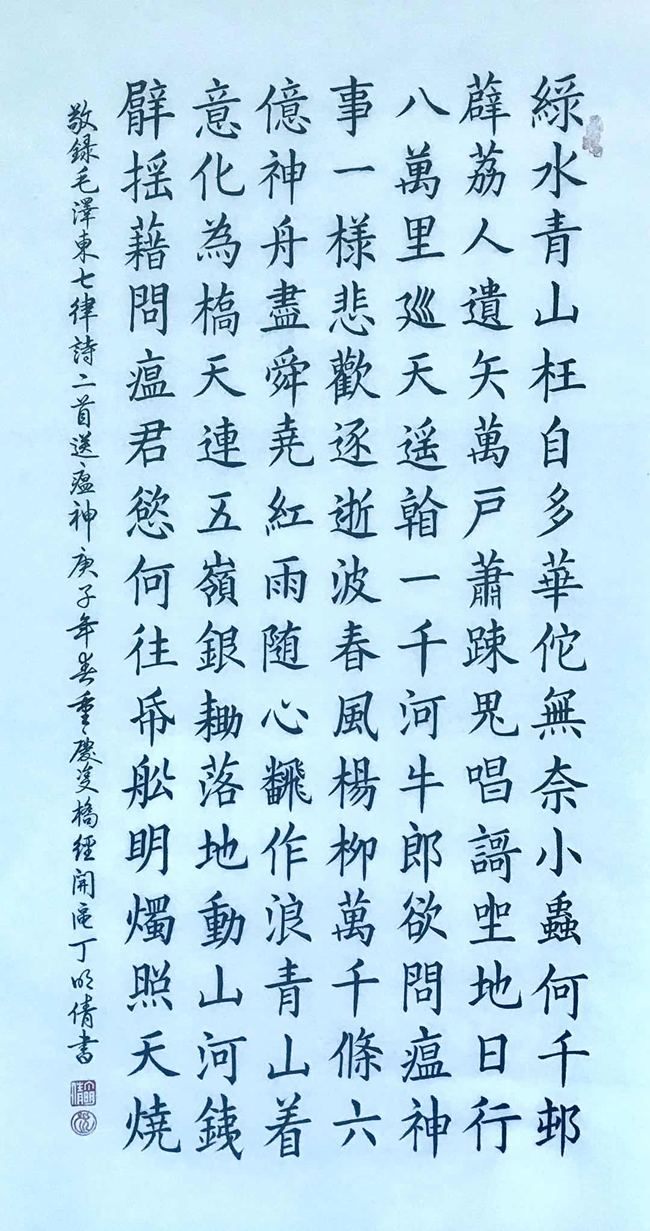 綠水青山枉自多華佗無奈小蟲何千邨
薜荔人遺矢萬戸蕭踈鬼唱謌坐地日行
八萬里巡天遥一千河牛郎欲問瘟神
事一樣悲歡逐逝波春風楊柳萬千條六
億神舟盡舜尭紅雨随心飜作浪青山着
意化為橋天連五嶺銀耡落地動山河銕
臂揺藉問瘟君慾何往帋舩明燭照天燒
敬録毛澤東七律詩二首送瘟神庚子年春重慶雙橋經開區丁明倩書